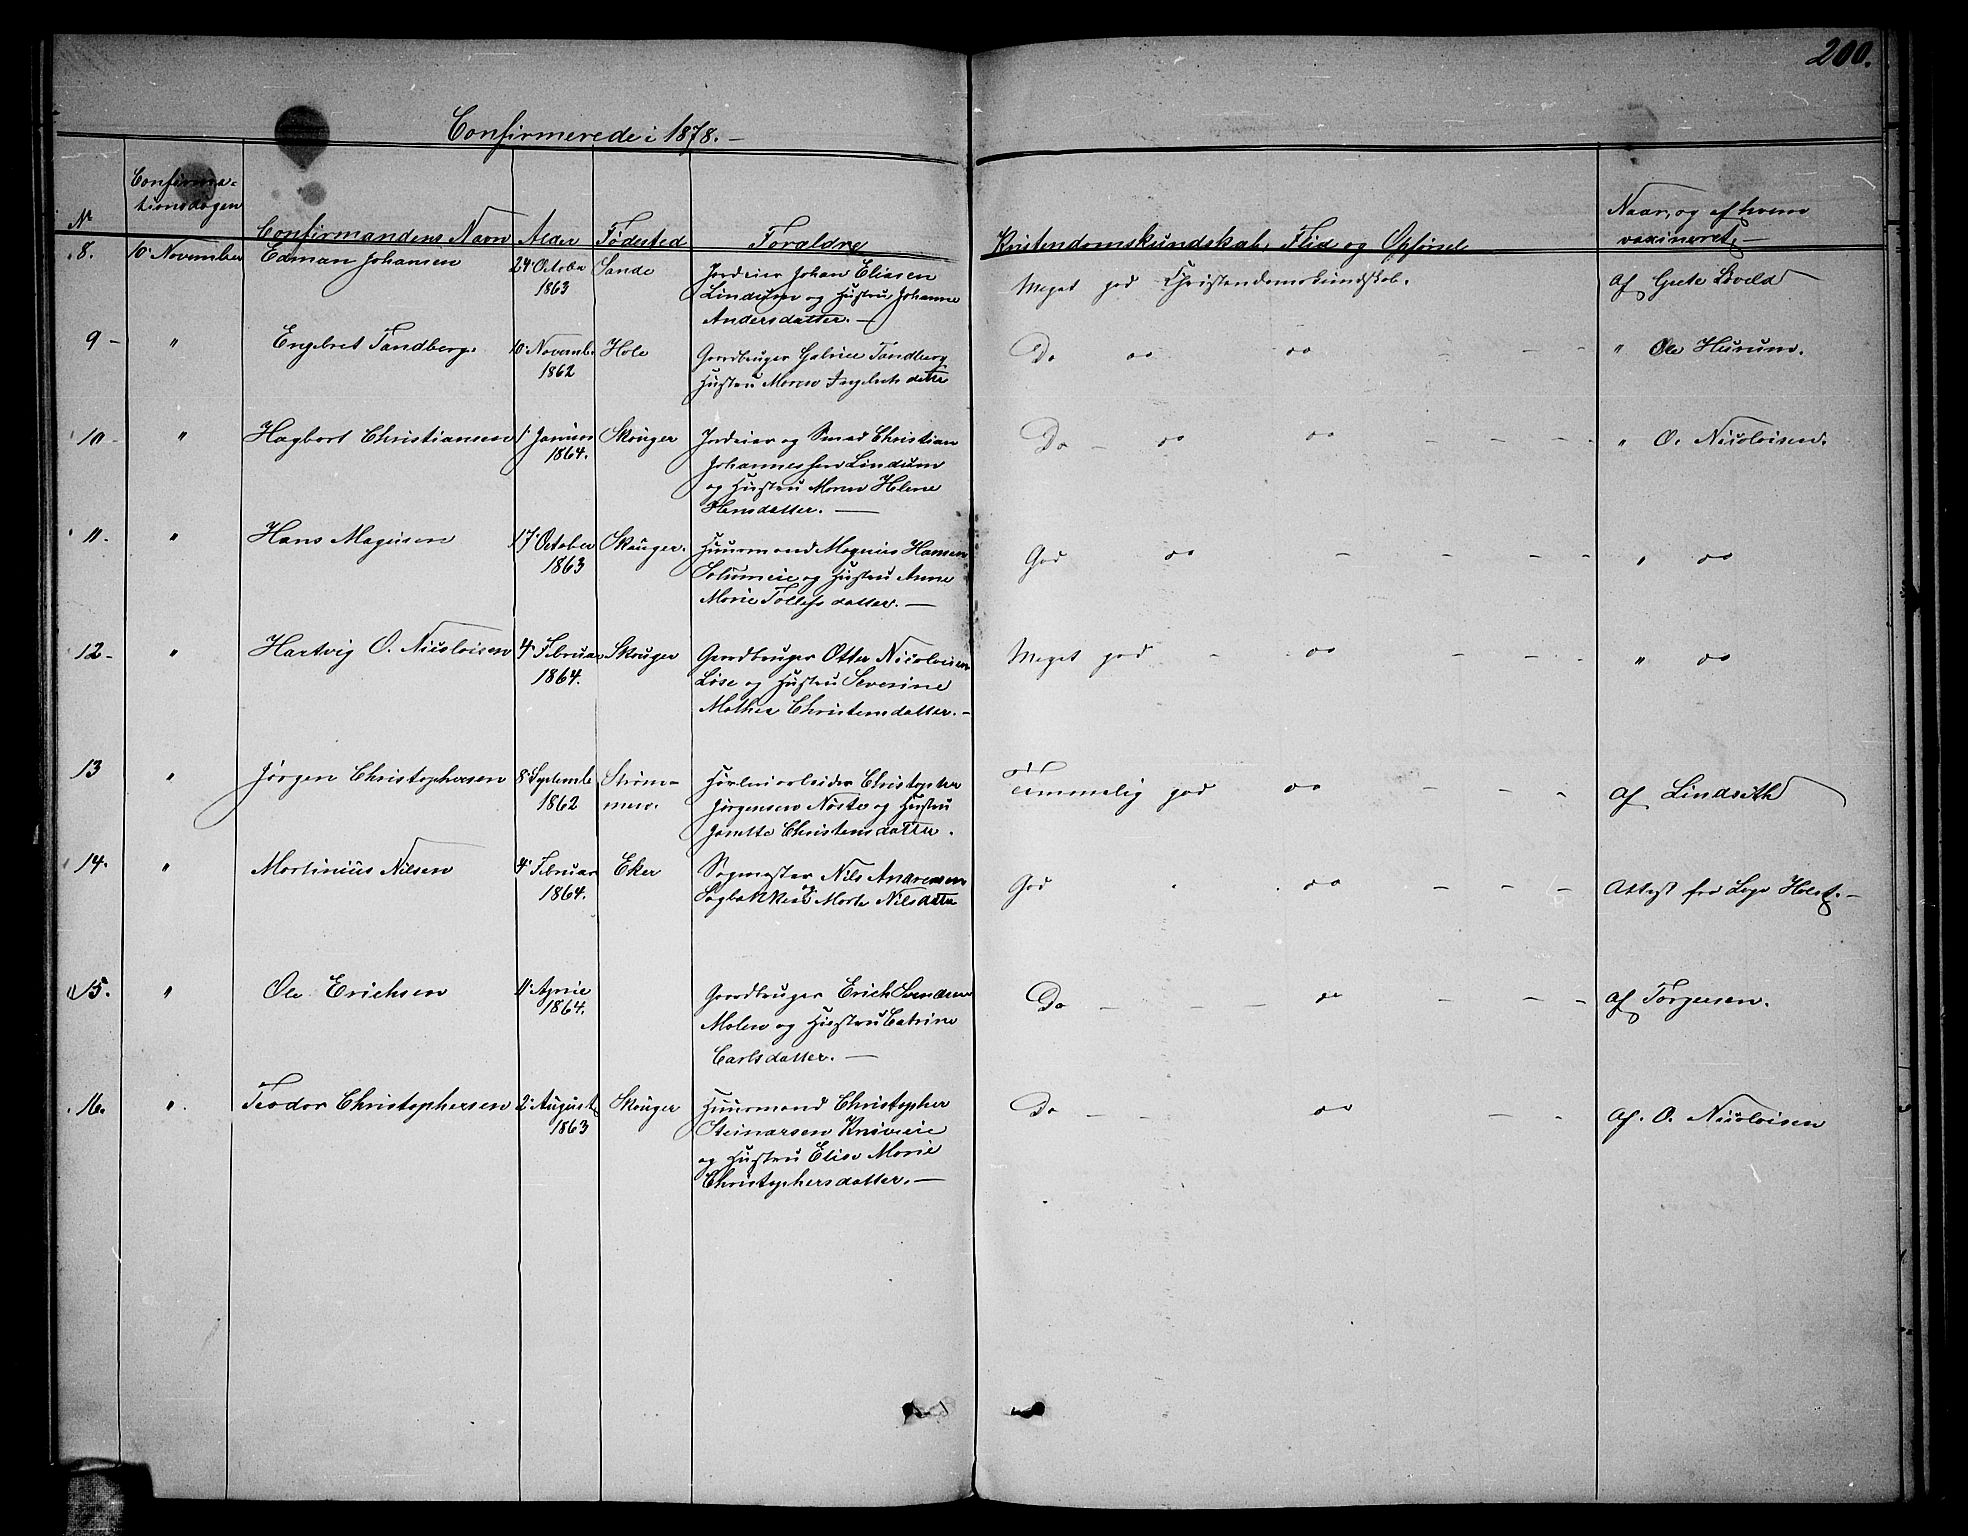 200.
Confirmerede i 1878. —
Nr
Confirma-
tionsdagen
Confirmandens Navn
Alder
Fødested
Foraldre
Kristendomskundskab, Flid og Opførsel
Naar, og af hvem
vaxineret, —
8. 10' November Edman Johansen 24' Octobe Sande
1863
Jordeier Johan Eliasen
Lindum og Hustru Johanne
Andersdatter. —
Meget god Christendomskundskab.
af Grete Løveld
9 — " Engebret Tandberg. 10' Novemb. Hole
1862
Gaardbruger Gabriel Tandberg
Hustru Maren Ingebretsdatte
Do do do — — —
" Ole Hurum.
10 — " Hagbart Christiansen 1' Januar Skouger
1864.
Jordeier og Smed Christian
Johannessen Lindum
og Hustru Maren Helene
Hansdatter. —
Do — do do — — —
" O. Nicolaisen.
11. " Hans Magnusen 17' October Skouger.
1863
Huusmand Magnus Hansen
Solumeie og Hustru Anne
Marie Tollefsdatter. —
God do — — — —
" do
12 — " Hartvig O. Nicolaisen 4' Februar Skouger
1864.
Gaardbruger Otter Nicolaisen
Løse og Hustru Severine
Mathea Christensdatter. —
Meget god — do — — —
" do
13 " Jørgen Christophersen 8' Septembe Strøm-
1862 men.
Høvleriarbeider Christopher
Jørgensen Nøste og Hustru
Janette Christensdatter.
Temmelig god do — — —
af Lindseth
14. " Martinius Nilsen 4' Februar Eker
1864.
Sagmester Nils Andresen
Sagbakken og Marte Nilsdatte
God do — — —
Attest fra Lege Holst. —
15. " Ole Erichsen 11' April
1864.
Gaardbruger Erich Svendsen
Malen og Hustru Catrine
Carlsdatter. —
Do — — — do — — —
af Torgersen.
16. " Teodor Christophersen 2' August Skouger
1863
Huusmand Christopher
Steinarsen Kniveie
og Hustru Elise Marie
Christophersdatter. —
Do — — do — —
af. O. Nicolaisen